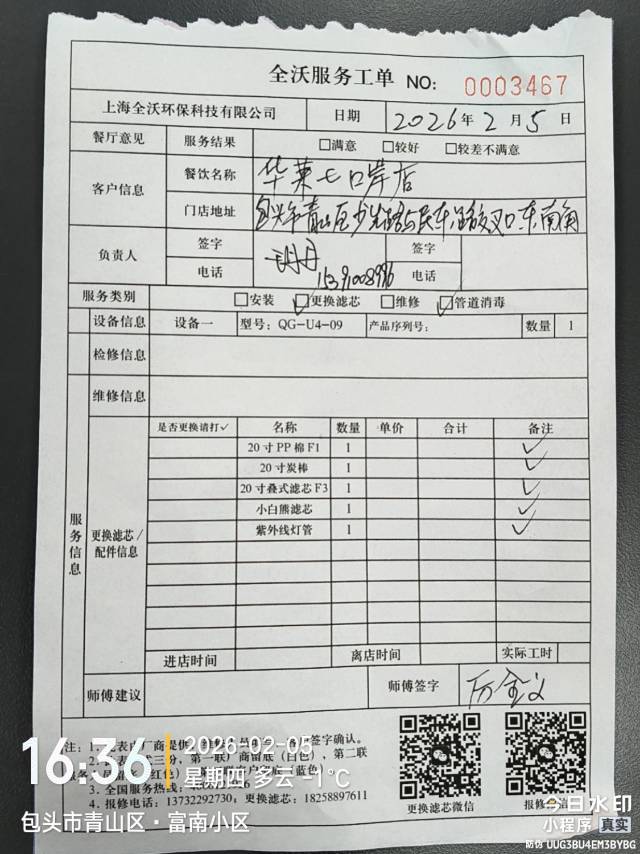 全沃服务工单 NO: 0003467
上海全沃环保科技有限公司 日期 2026年2月5日
餐厅意见 服务结果 □满意 □较好 □较差不满意
客户信息 餐饮名称 华莱士口岸店
门店地址 青山区少先路与民主路交叉口东南角
负责人 签字 签字
电话 电话
服务类别 □安装 ☑更换滤芯 □维修 ☑管道消毒
设备信息 设备一 型号: QG-U4-09 产品序列号: 数量 1
检修信息
服务信息
维修信息
更换滤芯/配件信息
是否更换请打✓ 名称 数量 单价 合计 备注
20寸PP棉F1 1 ✓
20寸炭棒 1 ✓
20寸叠式滤芯F3 1 ✓
小白熊滤芯 1 ✓
紫外线灯管 1 ✓
进店时间 离店时间 实际工时
师傅建议 师傅签字
注: 1. 表由厂商提供, 签字确认。
2. 三份, 第一联厂商留底(白色), 第二联
服务 (红色) 蓝色)
3. 全国服务热线:
4. 报修电话: 13732292730; 更换滤芯: 18258897611
更换滤芯微信
16:36 2026-02-05
星期四 多云 -1℃
包头市青山区·富南小区
今日水印
小程序 真实
防伪 UUG3BU4EM3BYBG